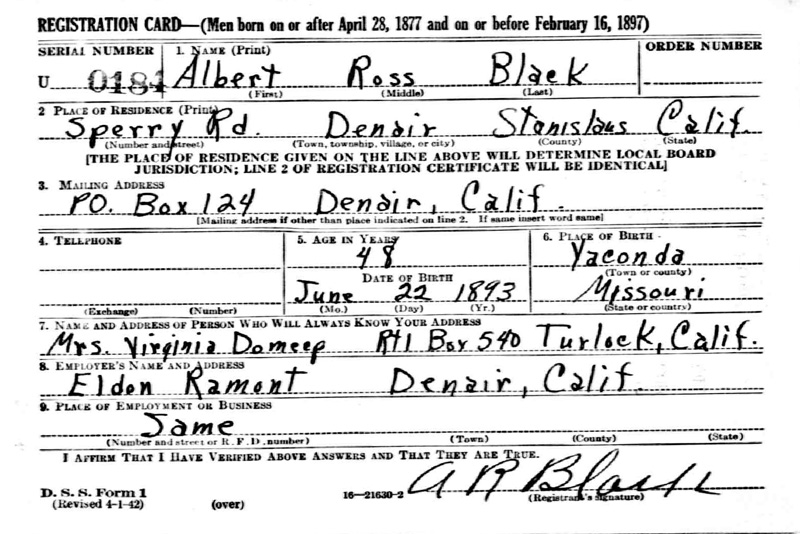 REGISTRATION CARD—(Men born on or after April 28, 1877 and on or before February 16, 1897)
SERIAL NUMBER 1. NAME (Print) ORDER NUMBER
U 0184 Albert Ross Black
(First) (Middle) (Last)
2 PLACE OF RESIDENCE (Print)
Sperry Rd. Denair Stanislaus Calif.
(Number and street) (Town, township, village, or city) (County) (State)
[THE PLACE OF RESIDENCE GIVEN ON THE LINE ABOVE WILL DETERMINE LOCAL BOARD
JURISDICTION; LINE 2 OF REGISTRATION CERTIFICATE WILL BE IDENTICAL]
3. MAILING ADDRESS
P.O. Box 124 Denair, Calif.
[Mailing address if other than place indicated on line 2. If same insert word same]
4. TELEPHONE 5. AGE IN YEARS 6. PLACE OF BIRTH
48 Yaconda
DATE OF BIRTH (Town or county)
June 22 1893 Missouri
(Exchange) (Number) (Mo.) (Day) (Yr.) (State or country)
7. NAME AND ADDRESS OF PERSON WHO WILL ALWAYS KNOW YOUR ADDRESS
Mrs. Virginia Rt1 Box 540 Turlock, Calif.
8. EMPLOYER'S NAME AND ADDRESS
Eldon Ramont Denair, Calif.
9. PLACE OF EMPLOYMENT OR BUSINESS
Same
(Number and street or R. F. D. number) (Town) (County) (State)
I AFFIRM THAT I HAVE VERIFIED ABOVE ANSWERS AND THAT THEY ARE TRUE.
A R Black
D. S. S. Form 1 16—21630-2 (Registrant's signature)
(Revised 4-1-42) (over)